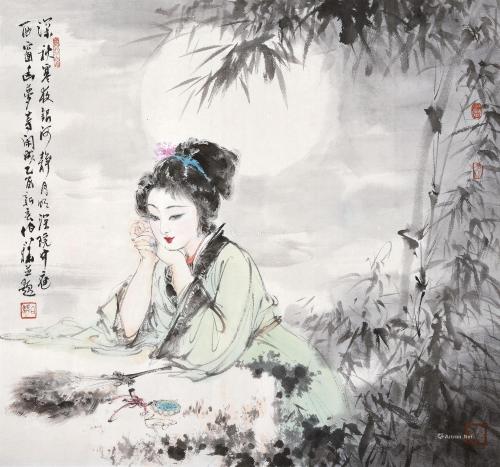 深秋寒夜銀河靜月明深院中庭
西窗幽夢等閒成乙酉並題
Artron.Net